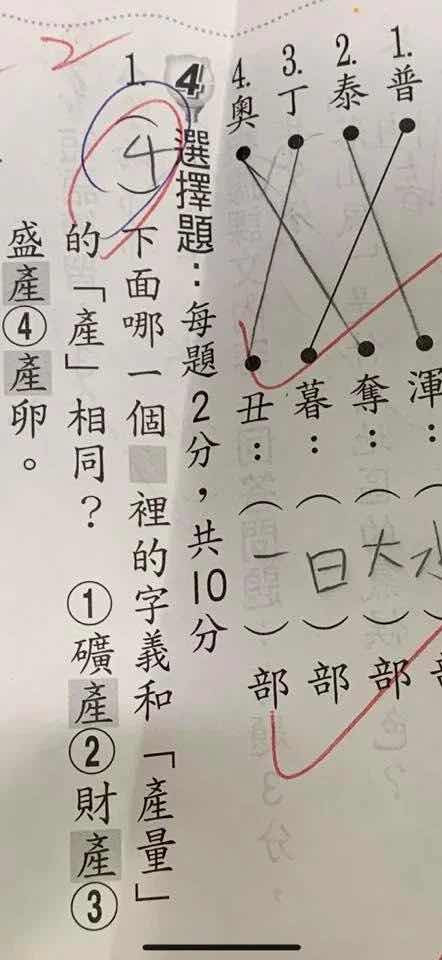 1. 普
2. 泰
3. 丁
4. 奧
渾：（水
奪：（大）部
暮：（日）部
丑：（一）部
4 選擇題：每題2分，共10分
1. （4）下面哪一個 裡的字義和「產量」
的「產」相同？ ①礦產②財產③
盛產④產卵。
-2